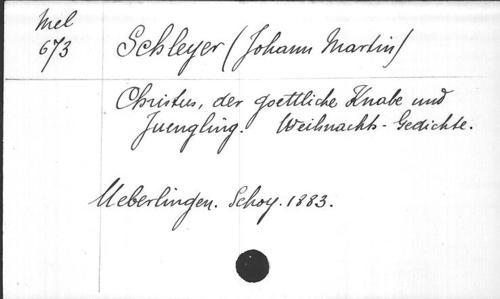 Mel
673
Schleyer (Johann Martin)
Christus, der goettliche Knabe und
Juengling. Weihnachts-Gedichte.
Ueberlingen. Schoy. 1883.